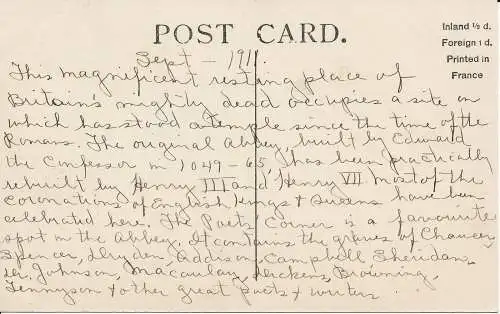 POST CARD.
Inland ½ d.
Foreign 1 d.
Printed in
France
Sept - 1911.
This magnificent resting place of
Britain's mighty dead occupies a site on
which has stood a temple since the time of the
Romans. The original Abbey, built by Edward
the Confessor in 1049-65, has been practically
rebuilt by Henry III and Henry VII. Most of the
coronations of English Kings & Queens have been
celebrated here. The Poets' Corner is a favourite
spot in the Abbey. It contains the graves of Chaucer,
Spencer, Dryden, Addison, Campbell Sheridan,
Johnson, Macaulay, Dickens, Browning,
Tennyson & other great Poets & writers.